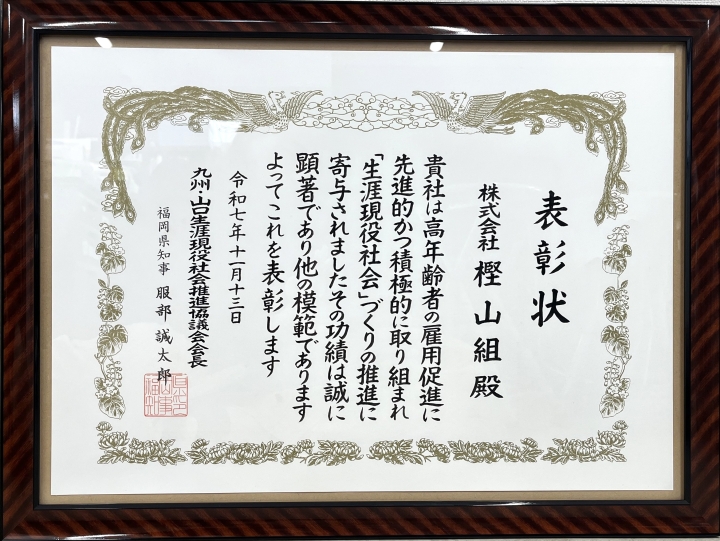 表彰状
株式会社 樫山組殿
貴社は高年齢者の雇用促進に
先進的かつ積極的に取り組まれ
「生涯現役社会」づくりの推進に
寄与されましたその功績は誠に
顕著であり他の模範であります
よってこれを表彰します
令和七年十一月十三日
九州・山口生涯現役社会推進協議会会長
福岡県知事 服部誠太郎